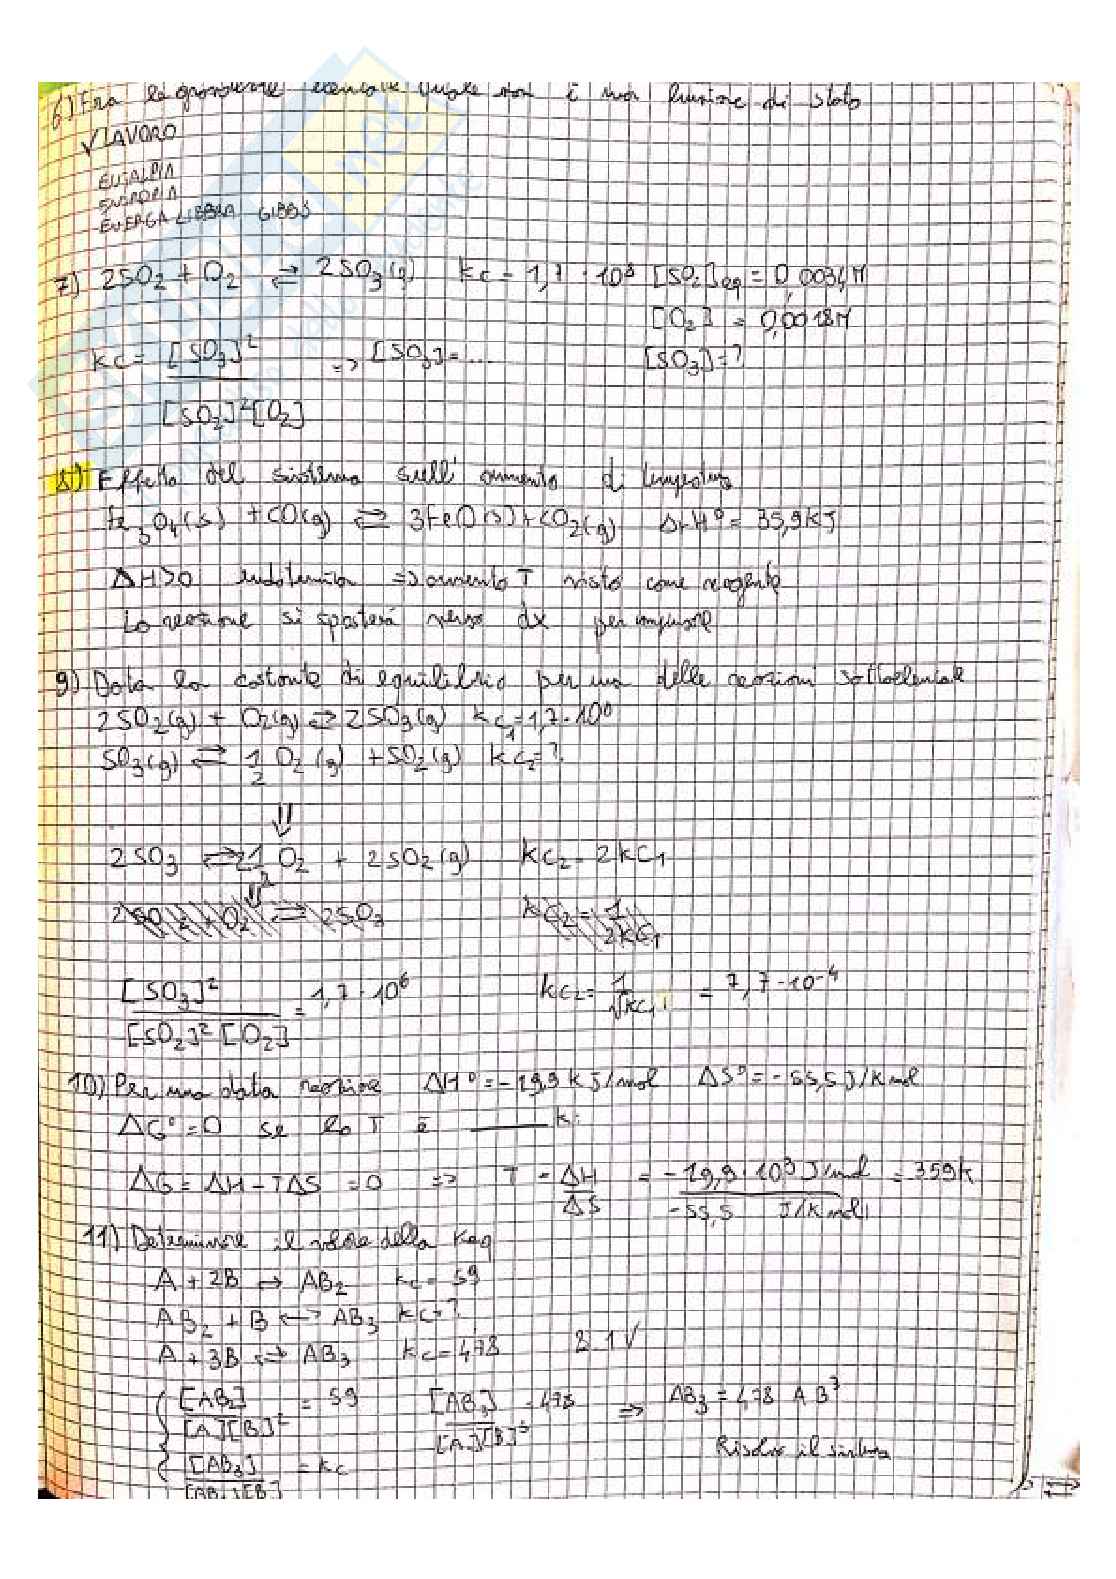 6) Fra le grandezze elencate quale non è una funzione di stato
√ LAVORO
ENTALPIA
ENTROPIA
ENERGA LIBERA GIBBS
7) 2SO₂ + O₂ ⇄ 2SO₃(g) kc = 1,7 · 10⁸ [SO₂]eq = 0,0034M
[O₂] = 0,0018M
kc = [SO₃]² / [SO₂]²[O₂] => [SO₃] = ... [SO₃] = ?
8) Effetto del sistema sull' aumento di temperatura
Fe₃O₄(s) + CO(g) ⇄ 3FeO(s) + CO₂(g) ΔrH° = 35,9kJ
ΔH>0 endotermica => aumento T visto come reagente
La reazione si sposterà verso dx per
9) Data la costante di equilibrio per una delle reazioni sottoelencate
2SO₂(g) + O₂(g) ⇄ 2SO₃(g) kc₁ = 1,7 · 10⁶
SO₃(g) ⇄ 1/2 O₂(g) + SO₂(g) kc₂ = ?
⇓
2SO₃ ⇄ O₂ + 2SO₂(g) kc₂ = 2kc₁
2SO₂ + O₂ ⇄ 2SO₃ kc₂ = 1/2kc₁
[SO₃]² / [SO₂]²[O₂] = 1,7 · 10⁶ kc₂ = 1/√kc₁ = 7,7 · 10⁻⁴
10) Per una data reazione ΔH° = -19,9 kJ/mol ΔS° = -55,5 J/Kmol
ΔG° = 0 se la T è ______ K:
ΔG = ΔH - TΔS = 0 => T = ΔH/ΔS = -19,9 · 10³ J/mol / -55,5 J/Kmol = 359K
11) Determinare il valore della keq
A + 2B ⇄ AB₂ kc = 59
AB₂ + B ⇄ AB₃ kc = ?
A + 3B ⇄ AB₃ kc = 478 8.1 √
{ [AB₂] / [A][B]² = 59 [AB₃] / [A][B]³ = 478 => AB₃ = 478 A B³
{ [AB₃] / [AB₂][B] = kc Risolvo il sistema